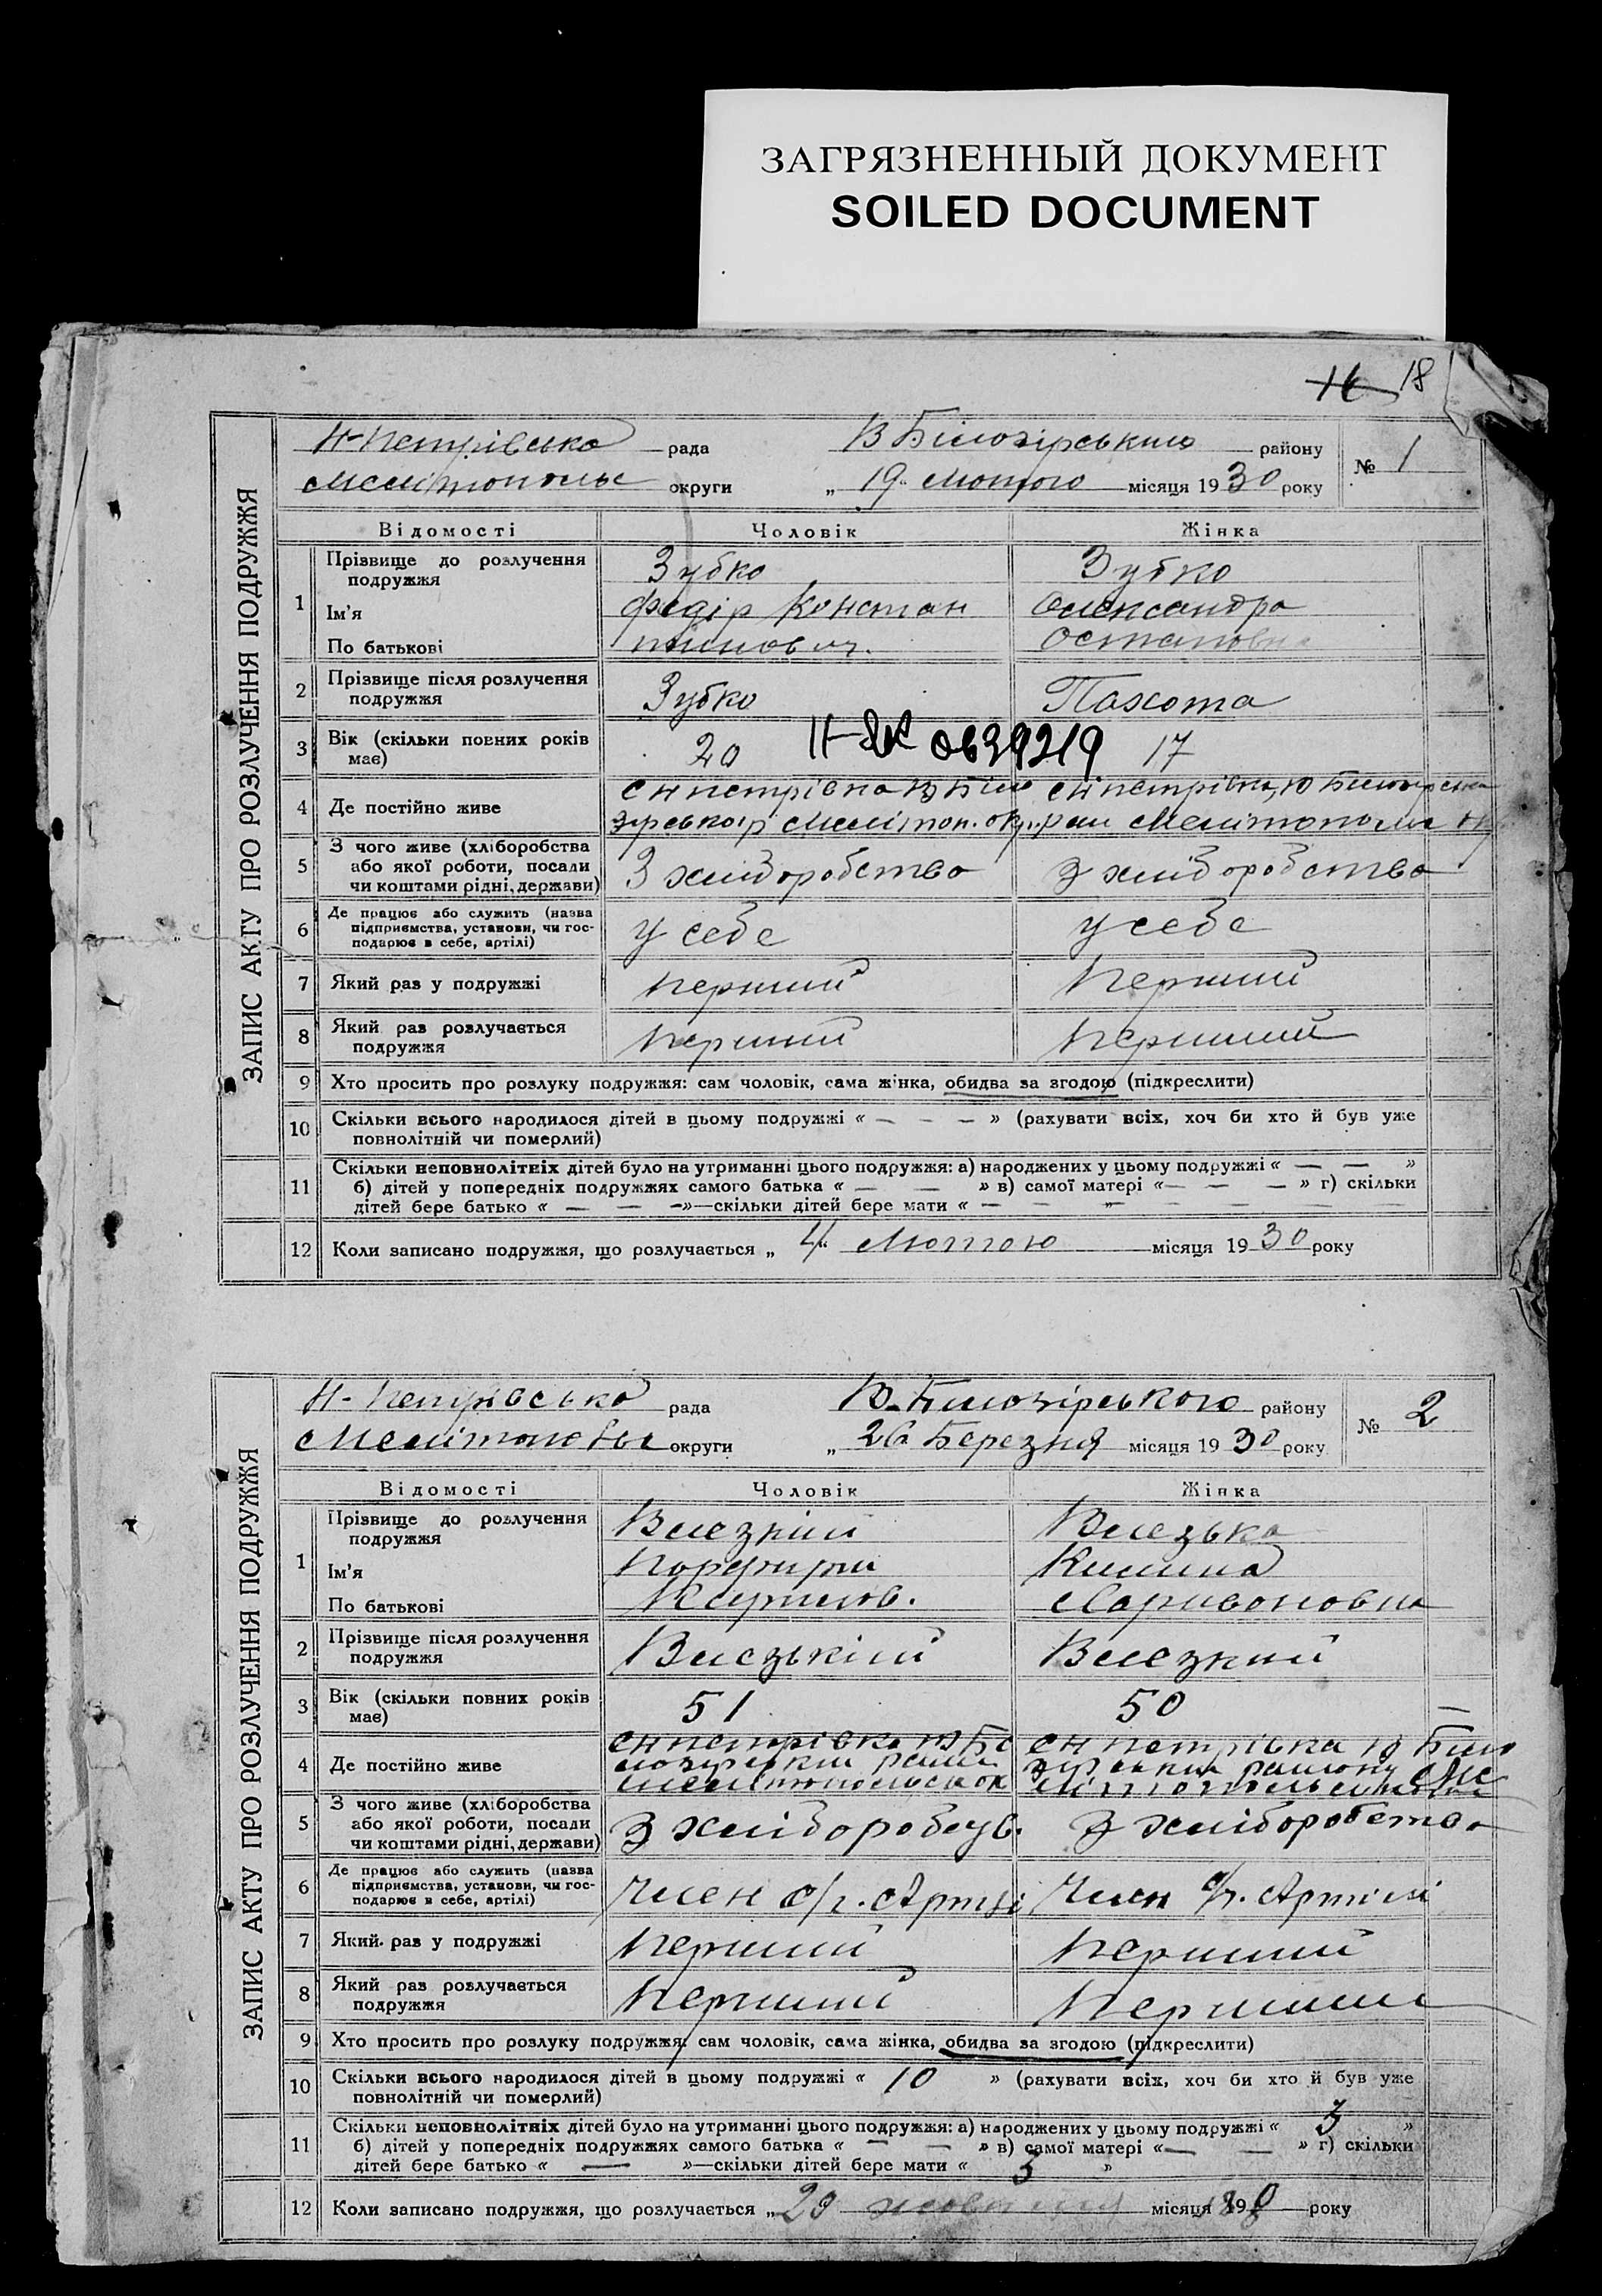 ЗАГРЯЗНЕННЫЙ ДОКУМЕНТ
SOILED DOCUMENT
16 18
ЗАПИС АКТУ ПРО РОЗЛУЧЕННЯ ПОДРУЖЖЯ
Н-Петрівська рада В Білозірського району № 1
Мелітопольс округи „ 19 " Лютого місяця 1930 року
Відомості Чоловік Жінка
1 Прізвище до розлучення подружжя Зубко Зубко
Ім'я Федір Констан Олександра
По батькові тинович. Остаповна
2 Прізвище після розлучення подружжя Зубко Пахота
3 Вік (скільки повних років має) 20 17
0639219
4 Де постійно живе с Н петрівка В Біло с Н петрівка, В Білозірська
зірськ р Мелітоп. окр. рай Мелітопольс окр
5 З чого живе (хліборобства або якої роботи, посади чи коштами рідні, держави) З хліборобства З хліборобства
6 Де працює або служить (назва підприємства, установи, чи господарює в себе, артілі) у себе у себе
7 Який раз у подружжі перший перший
8 Який раз розлучається подружжя перший перший
9 Хто просить про розлуку подружжя: сам чоловік, сама жінка, обидва за згодою (підкреслити)
10 Скільки всього народилося дітей в цьому подружжі « — — — » (рахувати всіх, хоч би хто й був уже
повнолітній чи померлий)
11 Скільки неповнолітніх дітей було на утриманні цього подружжя: а) народжених у цьому подружжі « — — »
б) дітей у попередніх подружжях самого батька « — — » в) самої матері « — — — » г) скільки
дітей бере батько « — — — »—скільки дітей бере мати « — — »
12 Коли записано подружжя, що розлучається „ 4 " Лютого місяця 1930 року
ЗАПИС АКТУ ПРО РОЗЛУЧЕННЯ ПОДРУЖЖЯ
Н-Петрівська рада В-Білозірського району № 2
округи „ 26 Березня місяця 1930 року
Відомості Чоловік Жінка
1 Прізвище до розлучення подружжя Влезкій Влезька
Ім'я Порфирій Килина
По батькові Кирилов. Ларивоновна
2 Прізвище після розлучення подружжя Влезькій Влезкий
3 Вік (скільки повних років має) 51 50 —
4 Де постійно живе с Н петрівка В Бі с Н петрівка В Біло
лозірський район зірський району Ме
Мелітопольск ок
5 З чого живе (хліборобства або якої роботи, посади чи коштами рідні, держави) З хліборобств. З хліборобства
6 Де працює або служить (назва підприємства, установи, чи господарює в себе, артілі) Член с/г. Артілі Член с/г. Артілі
7 Який раз у подружжі перший перший
8 Який раз розлучається подружжя перший перший
9 Хто просить про розлуку подружжя: сам чоловік, сама жінка, обидва за згодою (підкреслити)
10 Скільки всього народилося дітей в цьому подружжі « 10 » (рахувати всіх, хоч би хто й був уже
повнолітній чи померлий)
11 Скільки неповнолітніх дітей було на утриманні цього подружжя: а) народжених у цьому подружжі « 3 »
б) дітей у попередніх подружжях самого батька « — — » в) самої матері « — — » г) скільки
дітей бере батько « — »—скільки дітей бере мати « 3 »
12 Коли записано подружжя, що розлучається „ 29 жовтня місяця року